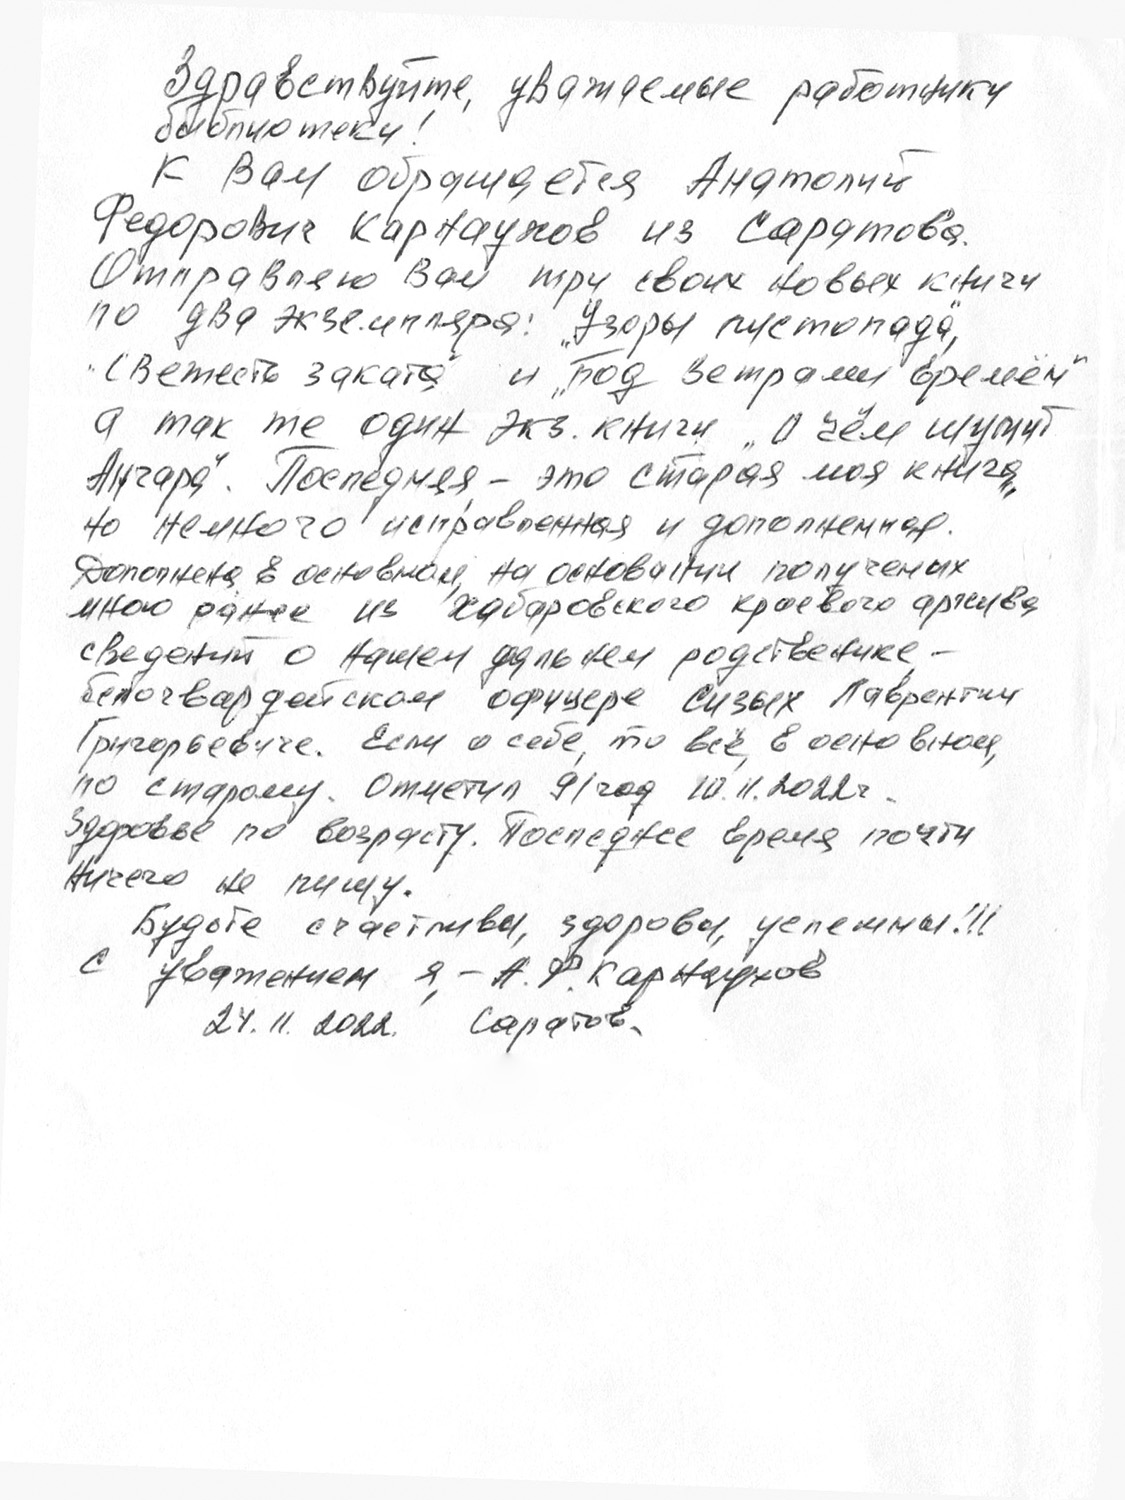 Здравствуйте, уважаемые работники
библиотеки!
К Вам обращается Анатолий
Федорович Карнаухов из Саратова.
Отправляю Вам три своих новых книги
по два экземпляра: „Узоры листопада",
„Свежесть заката" и „Под ветрами времён"
а так же один экз. книги „О чём шумит
Ангара". Последняя, – это старая моя книга,
но немного исправленная и дополненная.
Дополнена в основном, на основании полученых
мною ранее из Хабаровского краевого архива
сведений о нашем дальнем родственике, –
белогвардейском офицере Сизых Лаврентии
Григорьевиче. Если о себе, то всё, в основном,
по старому. Отметил 91 год 10.11.2022г.
Здоровье по возрасту. Последнее время почти
ничего не пишу.
Будьте счастливы, здоровы, успешны!!!
С уважением я, – А.Ф. Карнаухов
24.11.2022. Саратов.